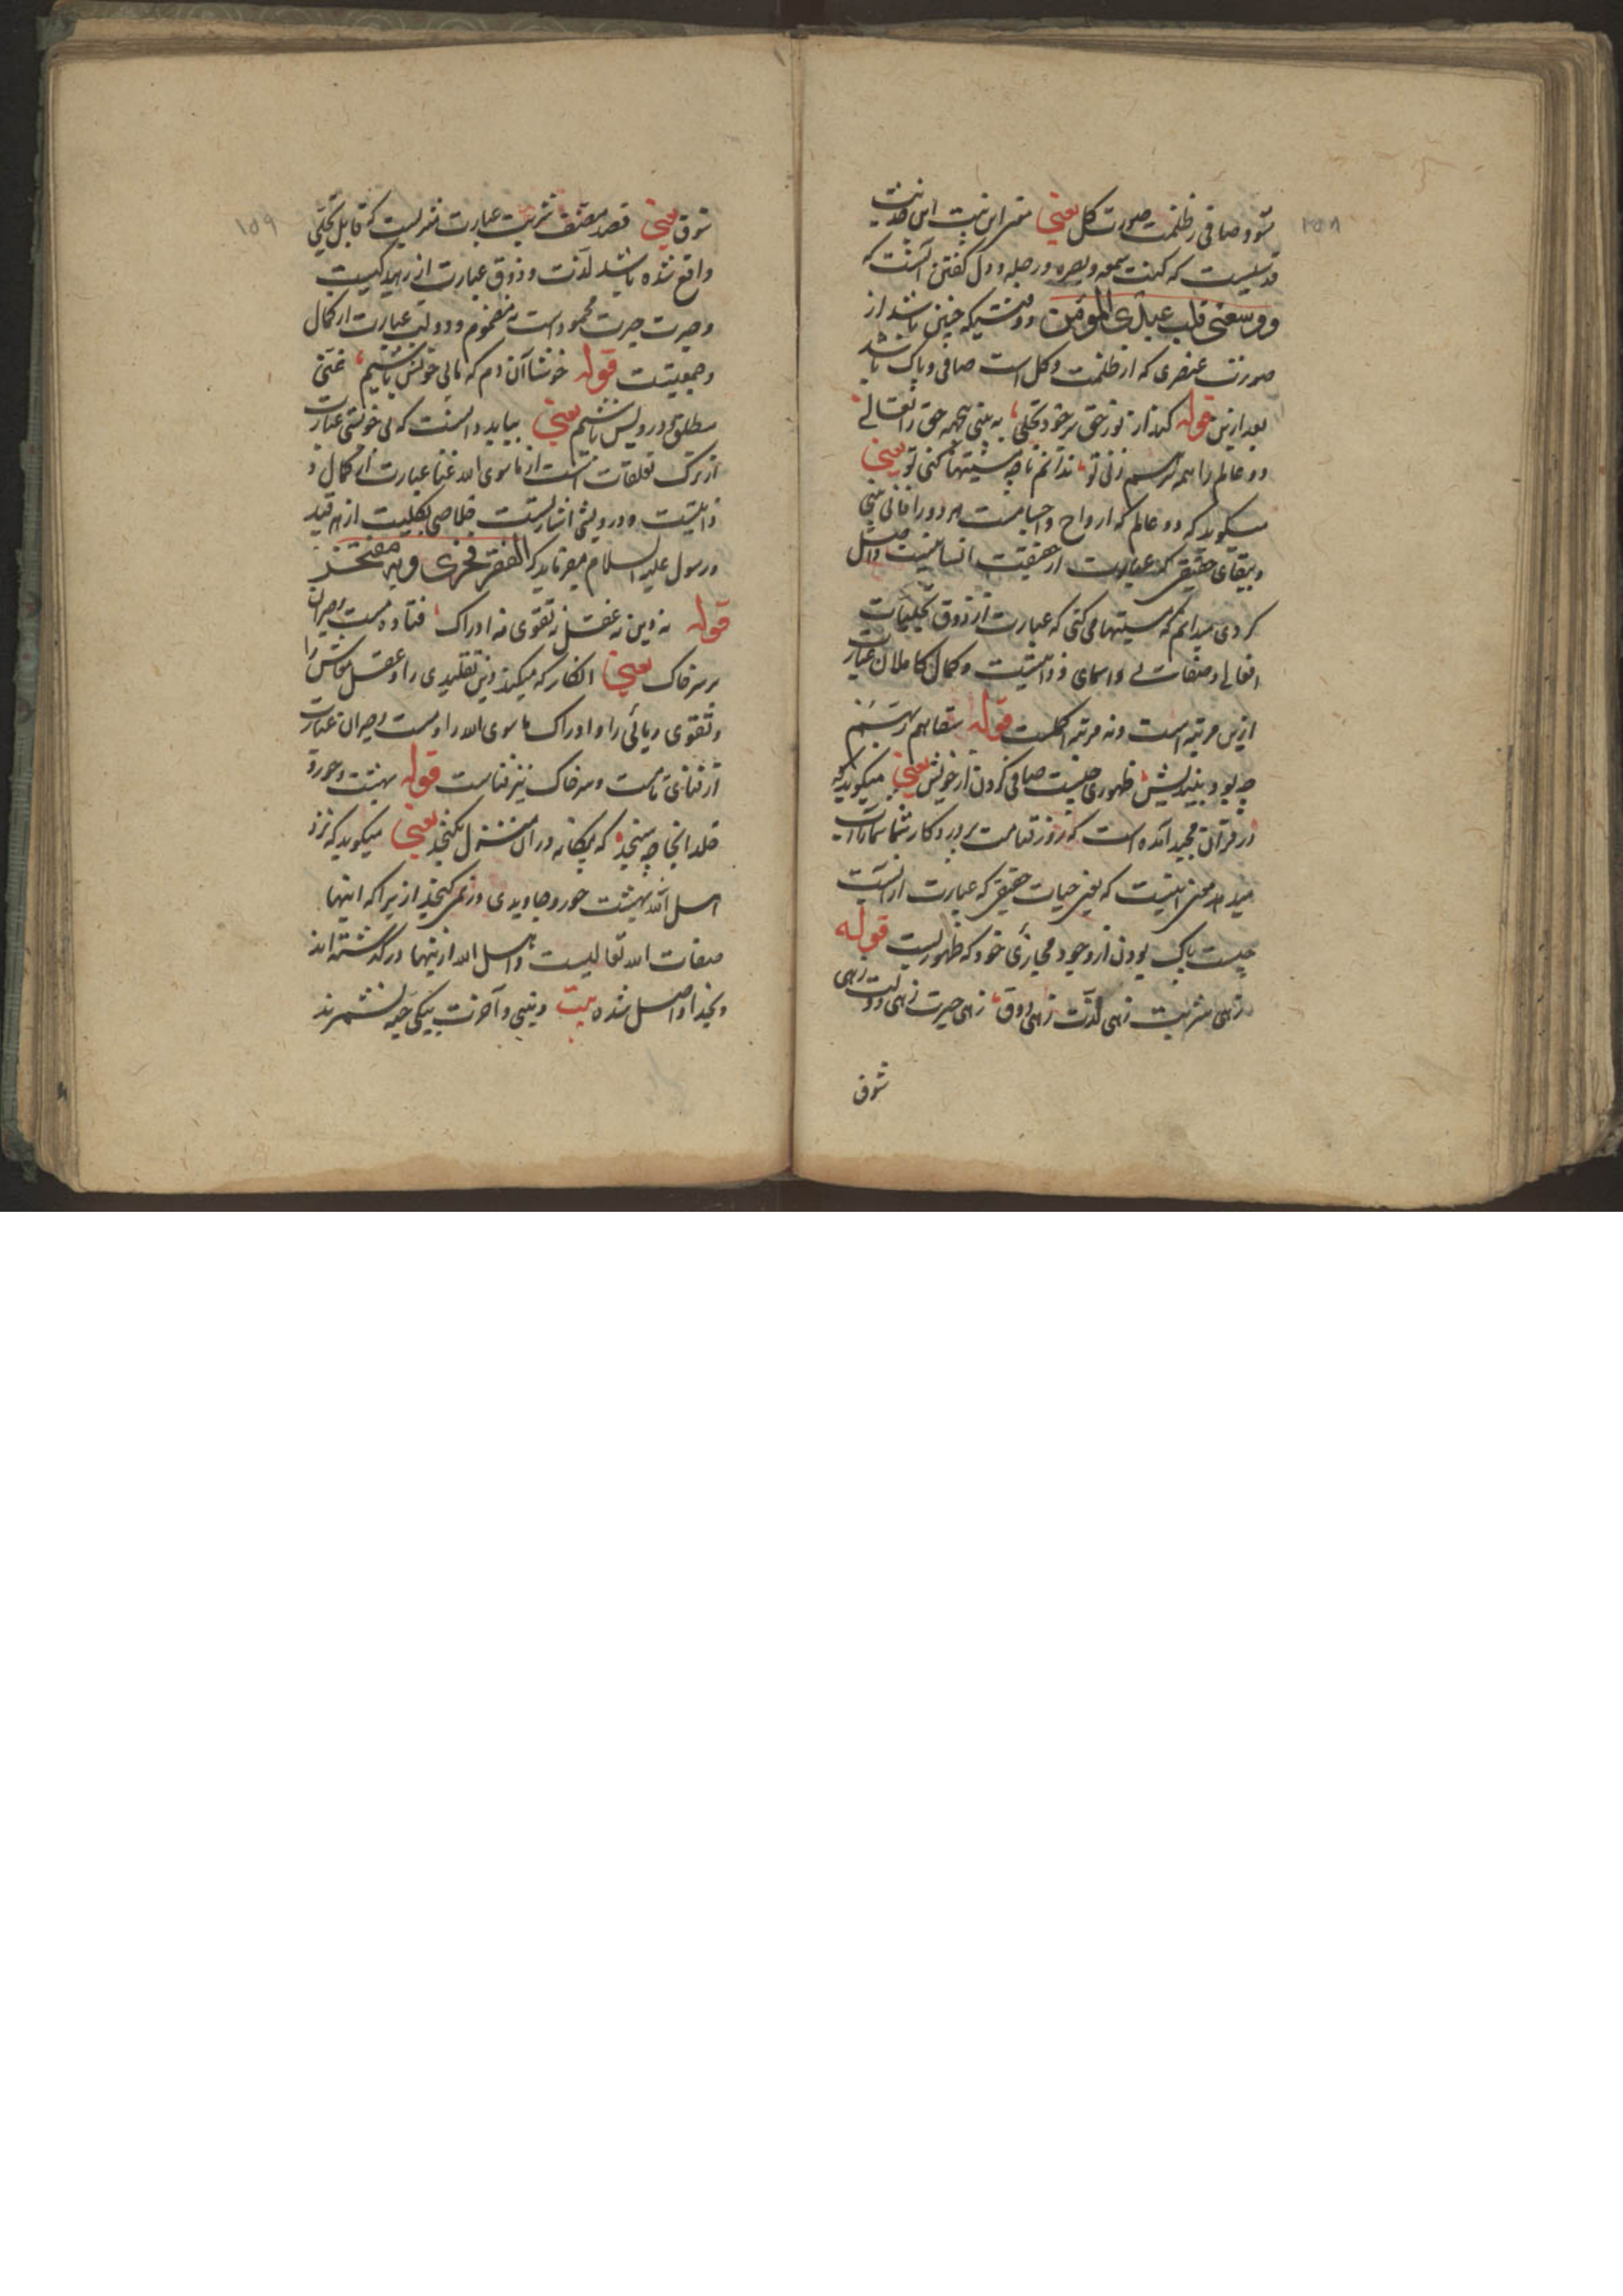 ۱۵۸
شود صافی ز ظلمت صورت گل یعنی این بیت این
قدسیست که کنت سمعه وبصره ورجله و دل گفتن آنست که
ووسعنی قلب عبدی المؤمن و وقتیکه چنین باشد از
صورت عنصری که از ظلمت و گل است صافی و پاک باشد
بعد ازین قوله کند از نور حق بر خود تجلی، به بینی بیجهة حق را تعالی
دو عالم را همه بر هم زنی تو، ندانم تا چه مستیها کنی تو یعنی
میگوید که دو عالم که ارواح و اجسامست هر دو را فانی بینی
و ببقای حقیقی که عبارت از حقیقت انسانیست واصل
کردی میدانم که مستیها می کنی که عبارت از ذوق تجلیات
افعالی و صفاتی و اسمای و ذاتیست و کمال کاملان عبارت
ازین مرتبه است و نه مرتبه اکملست قوله سقاهم ربهم
چه بود بیندیش، طهوری چیست صافی گردن از خویش یعنی میگوید که
در قرآن مجید آمده است که روز قیامت پروردگار شما شما را آب
میدهد معنی اینست که یعنی حیات حقیقی که عبارت از آنست
چیست پاک بودن از وجود مجازی خود که طهوریست قوله
زهی شربت زهی لذت زهی ذوق، زهی حیرت زهی دولت زهی
شوق
۱۵۹
شوق یعنی قصد مصنف شربت عبارت که قابل تجلی
واقع شده باشد لذت و ذوق عبارت از
و حیرت حیرت محمود است نه مذموم و دولت عبارت از کمال
و جمعیتست قوله خوشا آن دم که ما بی خویش باشیم، غنی
مطلق و درویش باشیم یعنی بباید دانست که بی خویشی عبارت
از ترک تعلقات است از ماسوی الله غنا عبارت از کمال و
ذاتیست و درویشی اشارتست خلاصی بکلیت از هر قید
و رسول علیه السلام میفرماید که الفقر فخری و به مفتخر
قوله نه دین نه عقل نه تقوی نه ادراک، فتاده مست و حیران
بر سر خاک یعنی انکار که میکند دین تقلیدی را و عقل معاش را
و تقوی ریائی را و ادراک ماسوی الله را و مست و حیران عبارت
از فنای تامست و سر خاک نیز فناست قوله بهشت و حور و
خلد اینجا چه سنجد، که بیگانه در ان منزل نگنجد یعنی میگوید که نزد
اهل الله بهشت حور و جاویدی وزنی نمی گنجد ازیرا که اینها
صفات الله تعالیست و اهل الله ازینها در گذشته اند
و بخدا واصل شده بیت دینی و آخرت بیکی حبه نشمرند